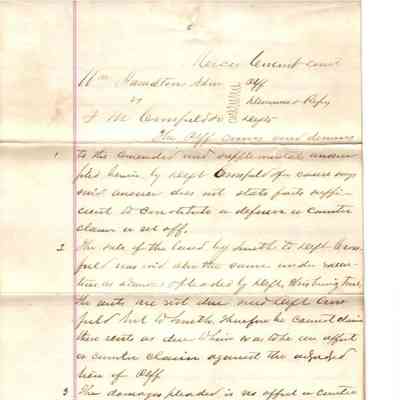 Mercer Circuit Court
Wm Hamilton Admr Plff
vs Demurrer & Reply
F M Cornfield Deft
The Plff comes and demurs
1 to the amended and supplemental answer
filed herein by Deft Cornfield & for cause says
said answer does not state facts suffi-
cient to constitute a defense or counter
claim or set off.
2 The sale of the land by Smith to Deft
field was and the same under
as pleaded by Deft,
the rents are not due said Deft
field but to Smith, therefore he cannot claim
these rents as due to him
or counter claim against the
tion of Plff
3 The damages pleaded is no offset or counter